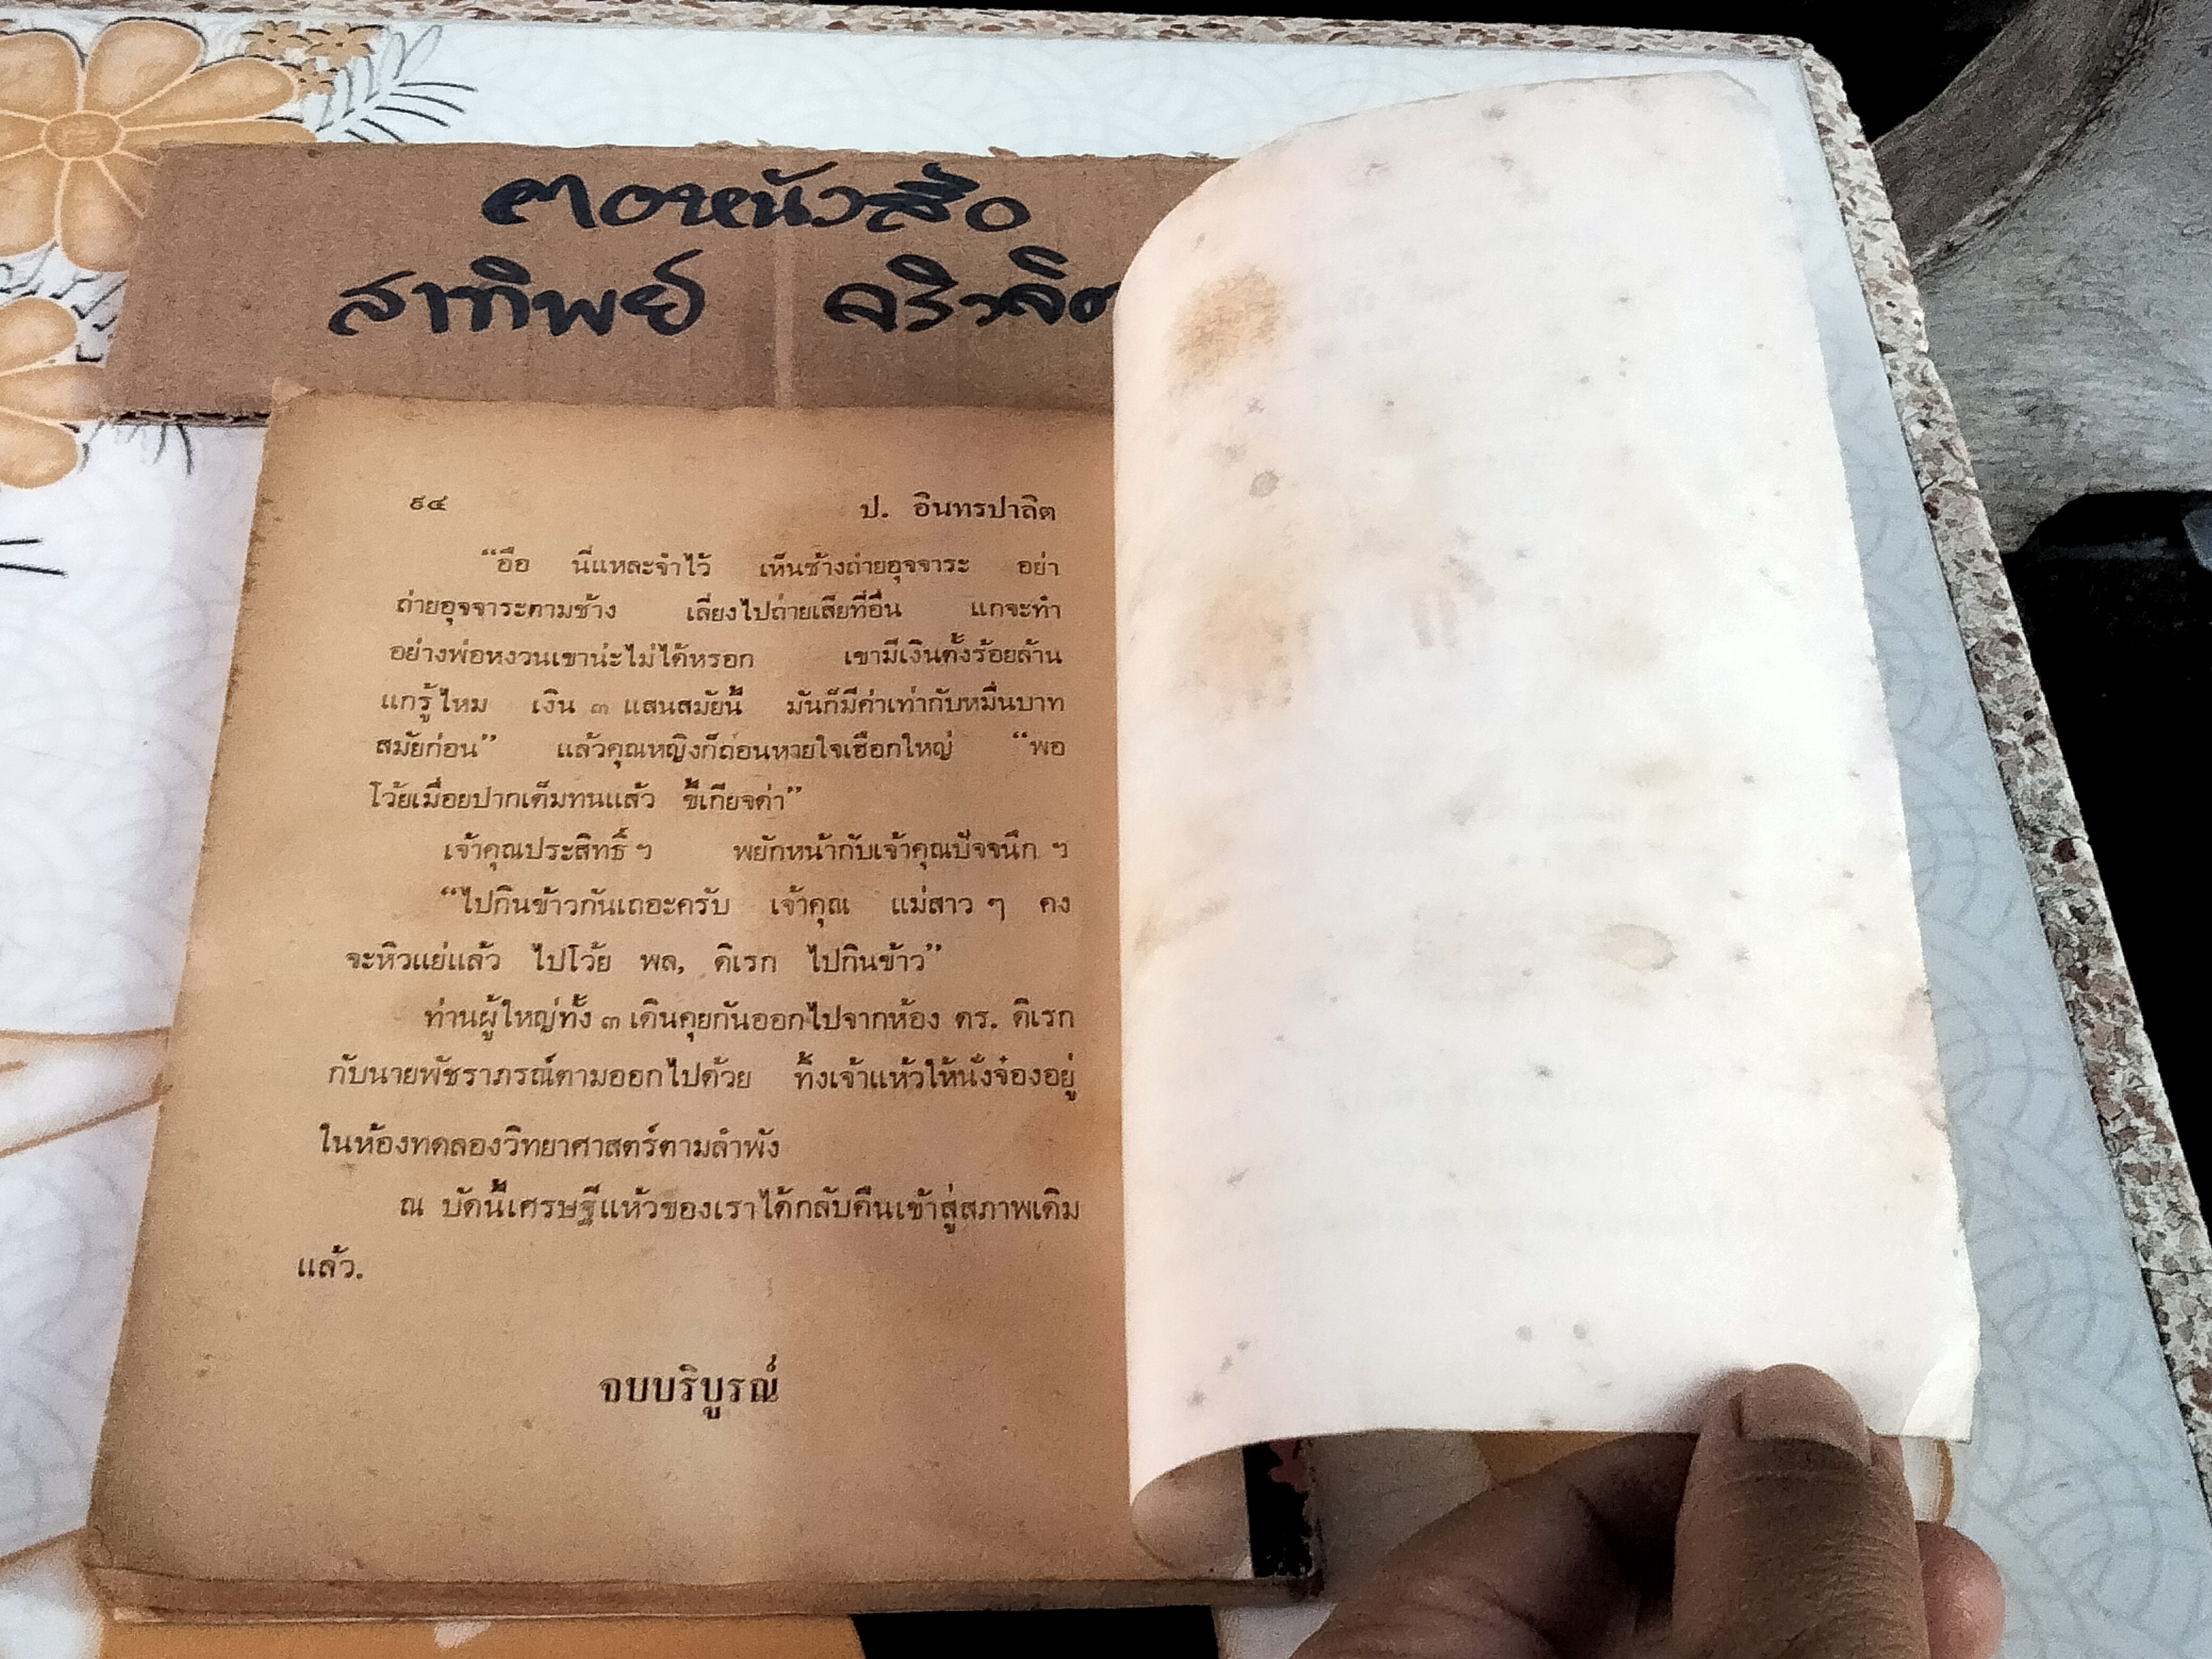 ตอหนังสือ
สาทิพย์
๙๔ ป. อินทรปาลิต
“อือ นี่แหละจำไว้ เห็นช้างถ่ายอุจจาระ อย่า
ถ่ายอุจจาระตามช้าง เลี่ยงไปถ่ายเสียที่อื่น แกจะทำ
อย่างพ่อหงวนเขาน่ะไม่ได้หรอก เขามีเงินตั้งร้อยล้าน
แกรู้ไหม เงิน ๓ แสนสมัยนี้ มันก็มีค่าเท่ากับหมื่นบาท
สมัยก่อน” แล้วคุณหญิงก็ถอนหายใจเฮือกใหญ่ “พอ
โว้ยเมื่อยปากเต็มทนแล้ว ขี้เกียจด่า”
เจ้าคุณประสิทธิ์ ฯ พยักหน้ากับเจ้าคุณปัจจนึก ฯ
“ไปกินข้าวกันเถอะครับ เจ้าคุณ แม่สาว ๆ คง
จะหิวแย่แล้ว ไปโว้ย พล, ดิเรก ไปกินข้าว”
ท่านผู้ใหญ่ทั้ง ๓ เดินคุยกันออกไปจากห้อง ดร. ดิเรก
กับนายพัชราภรณ์ตามออกไปด้วย ทิ้งเจ้าแห้วให้นั่งจ๋องอยู่
ในห้องทดลองวิทยาศาสตร์ตามลำพัง
ณ บัดนี้เศรษฐีแห้วของเราได้กลับคืนเข้าสู่สภาพเดิม
แล้ว.
จบบริบูรณ์